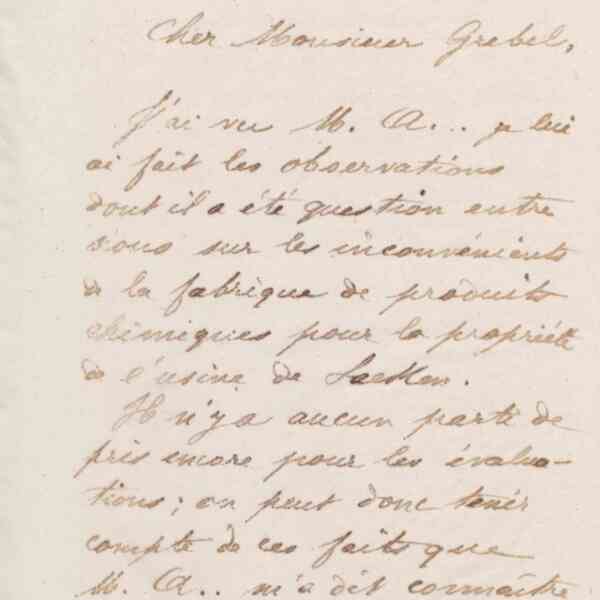 Cher Monsieur Grebel,
J'ai vu M. A... je lui
ai fait les observations
dont il a été question entre
nous sur les inconvénients
de la fabrique de produits
chimiques pour la propriété
de l'usine de Laeken.
Il n'y a aucun parti de
pris encore pour les évalua-
tions; on peut donc tenir
compte de ces faits que
M. A.. m'a dit connaître